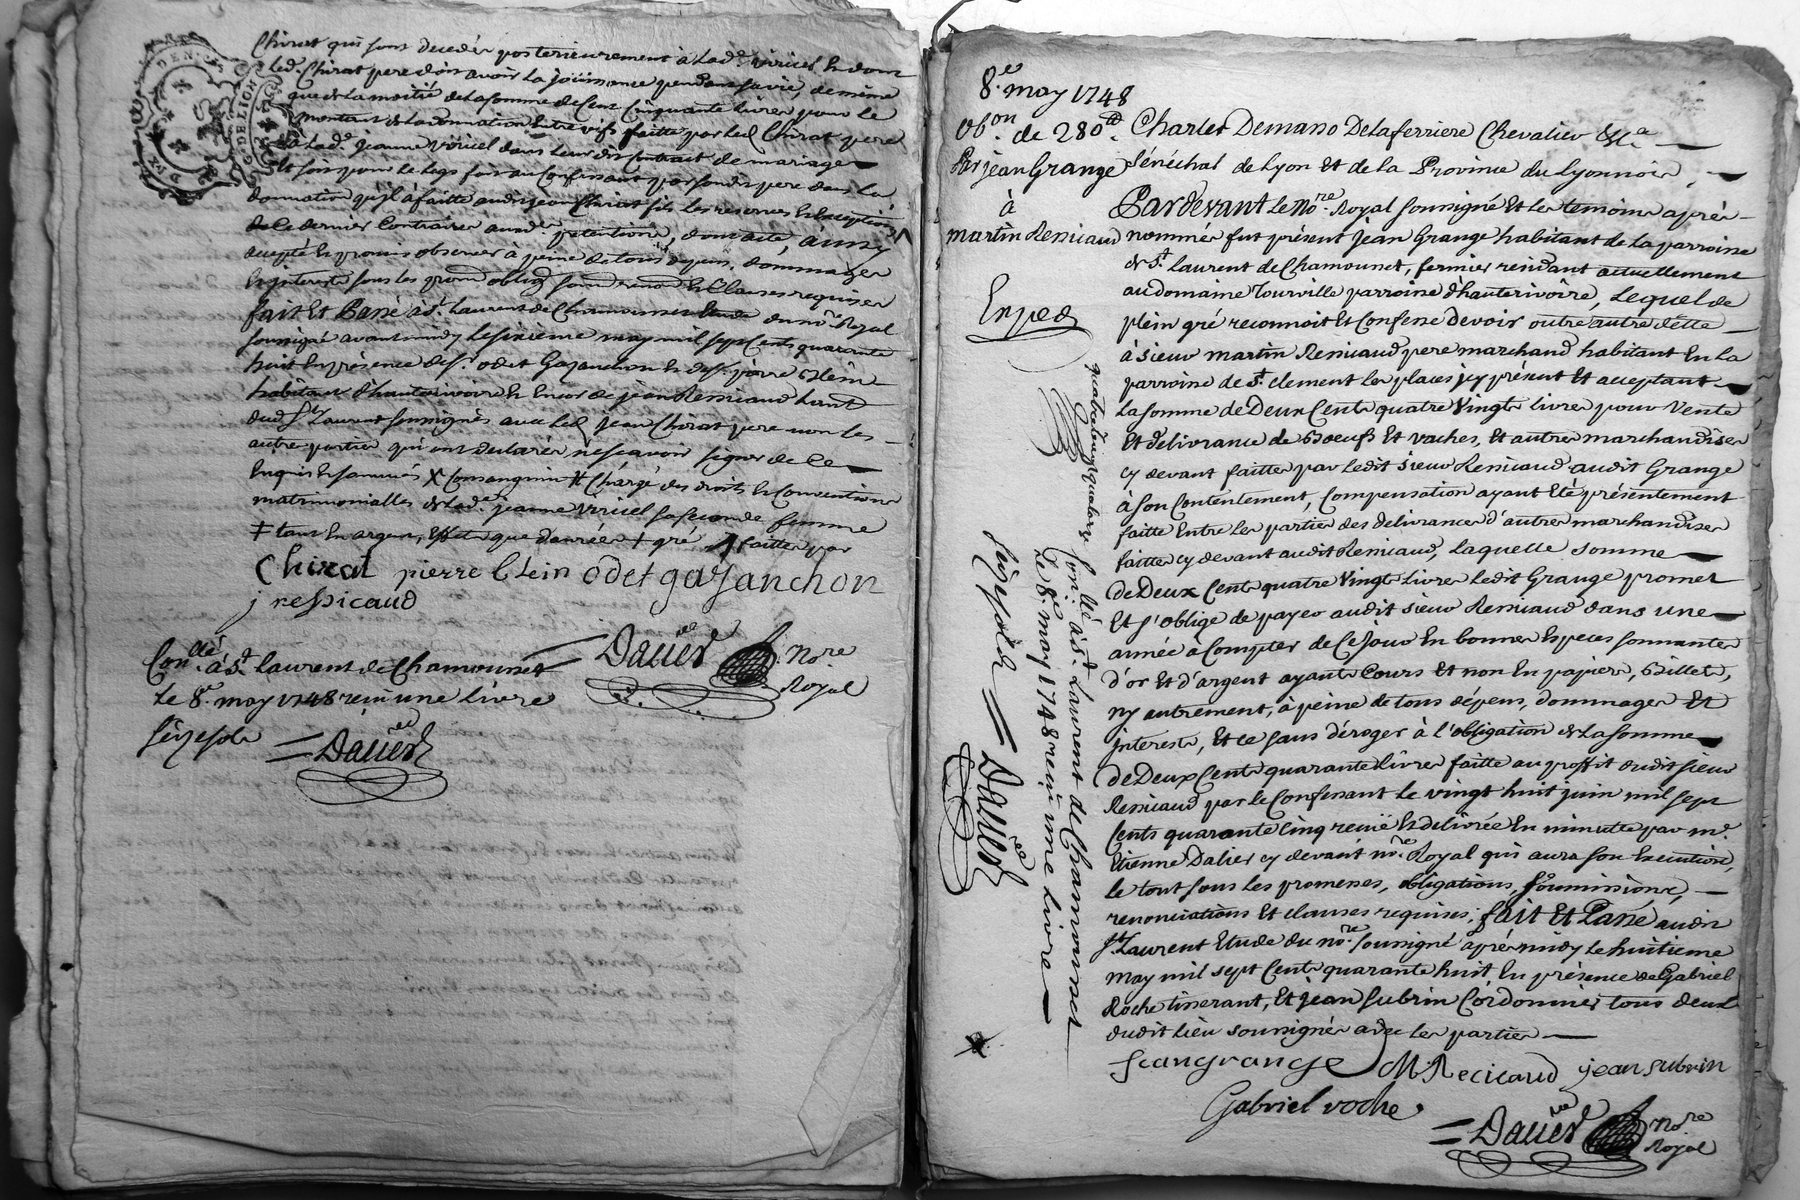 Chirat qui sont decedés posterieurement à lad. viricel et dont
led. Chirat pere doit avoir la joüissance pendant sa vie, de même
que de la moitié de la somme de Cent Cinquante livres pour le
montant de la donnation entre vifs faitte par led Chirat pere
à lad. jeanne viricel dans leur dit Contrait de mariage
et soit pour le legs fait au Confessant par sondit pere dans la
donnation qu'il à faitte audit jean Chirat fils les reserves et exceptions
de ce dernier Contraires aux d. pretentions, dont acte, ainsy
accepté et promis observer à peine de tous depens, dommages
et interests sous les prom. oblig. soum. renon. et Clauses requises
fait et Passé à St. Laurent de Chamousset Etude du no.re Royal
soussigné avant midy le sixieme may mil sept Cents quarante
huit en présence de Sr. odet Gazanchon et de Sr. pierre Clein
habitant d'hauterivoire et encor de jean Ressicaud
dud St. Laurent soussignés avec led jean Chirat pere non les
autres parties qui ont declarés ne scavoir signer de ce
enquis et sommés X Consanguins # Chargé des droits et Conventions
matrimonialles de lad. jeanne viricel sa seconde femme
‡ tant en argent, effets que danrées + gré faittes par
Chirat pierre Clein odet gazanchon
j ressicaud
Dalier no.re
Royal
Con.llé à St. Laurent de Chamousset
Le 8.e may 1748 reçu une livre
seize sols
Dalier
8.e may 1748
Ob.on de 280 ₶
Par jean Grange
à
martin Ressicaud
Exped
Charles Demaso Delaferriere Chevalier &c.a
Sénéchal de Lyon Et de la Province du Lyonnois,
Pardevant le No.re Royal soussigné Et les temoins après
nommés fut présent Jean Grange habitant de la parroisse
de St. Laurent de Chamousset, fermier residant actuellement
au domaine Tourville parroisse d'hauterivoire, lequel de
plein gré reconnoit et Confesse devoir outre autre dette
à sieur martin Ressicaud pere marchand habitant En la
parroisse de St. clement les places icy présent et acceptant
la somme de Deux Cents quatre Vingts livres pour Vente
Et délivrance de Boeufs Et vaches, Et autres marchandises
cy devant faittes par ledit sieur Ressicaud audit Grange
à son Contentement, Compensation ayant Eté présentement
faitte Entre les parties des delivrances d'autres marchandises
faittes cy devant audit Ressicaud, laquelle somme
de Deux Cents quatre Vingts livres ledit Grange promet
Et s'oblige de payer audit sieur Ressicaud dans une
année à Compter de Ce jour En bonnes Especes sonnantes
d'or Et d'argent ayants Cours Et non En papier, Billets,
ny autrement, à peine de tous dépens, dommages Et
interests, Et ce sans déroger à l'obligation de la somme
de Deux Cents quarante livres faitte au proffit dudit sieur
Ressicaud par le Confessant le vingt huit juin mil sept
Cents quarante Cinq reçuë et delivrée En minutte par m.e
Etienne Dalier cy devant no.re Royal qui aura son Execution,
le tout sous les promesses, obligations, soumissions,
renonciations Et clauses requises; fait Et Passé audit
St. Laurent Etude du no.re soussigné après midy le huitieme
may mil sept Cents quarante huit En présence de Gabriel
Roche tisserant, Et jean Subrin Cordonnier tous deux
dudit lieu soussignés avec les parties
jean grange M Ressicaud jean subrin
Gabriel roche
Dalier no.re
Royal
Con.llé à St. Laurent de Chamousset
Le 8.e may 1748 reçu une livre
seize sols Dalier